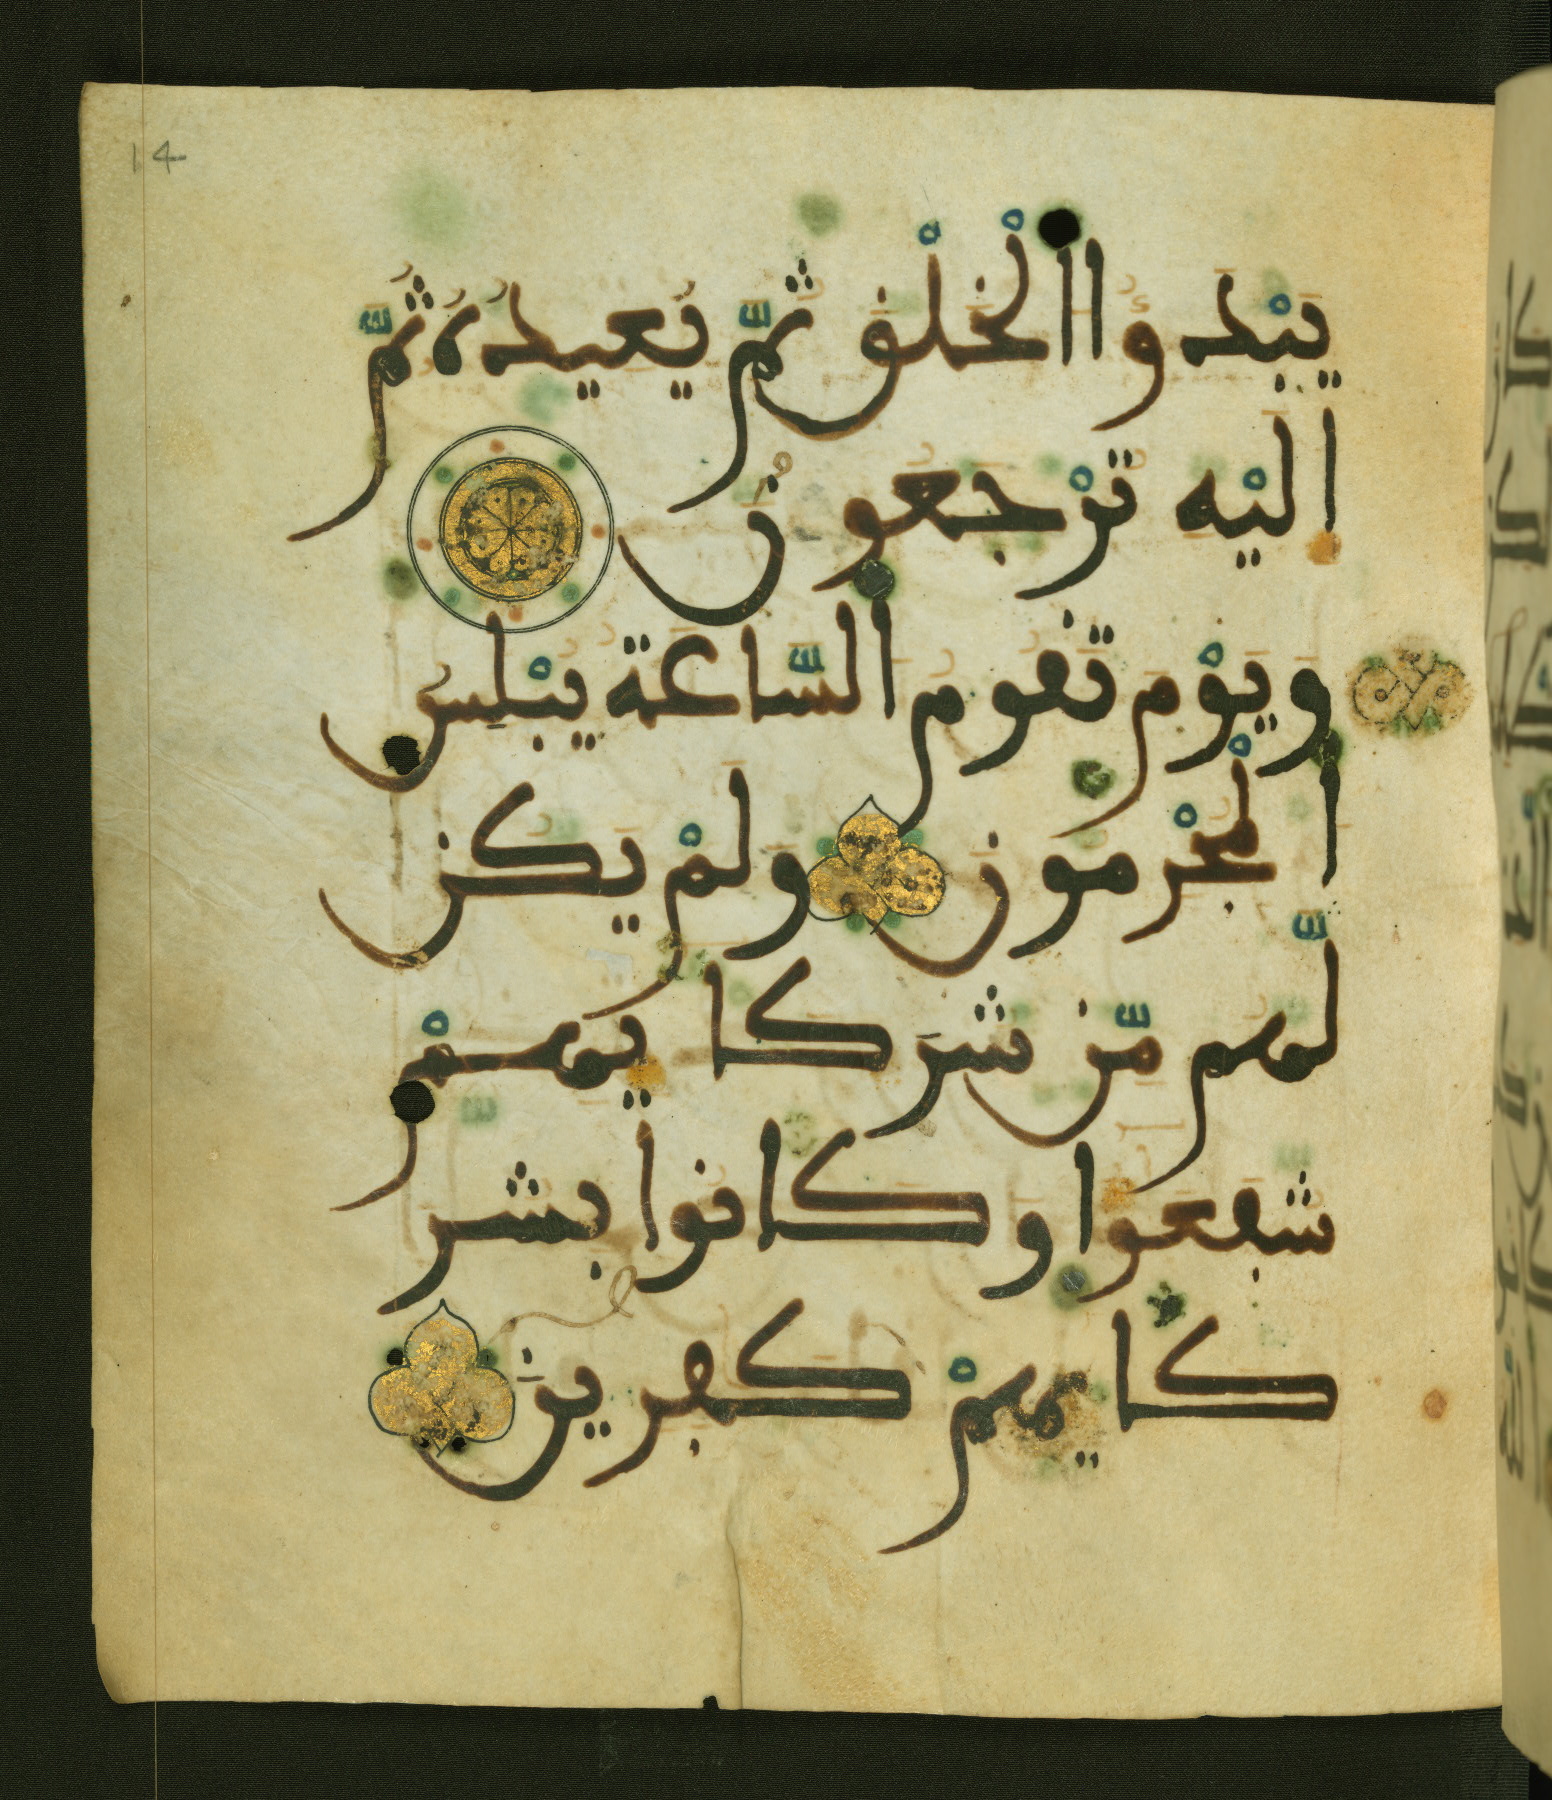 14
يَبْدَؤُا الْخَلْقَ ثُمَّ يُعِيدُهُ ثُمَّ
إِلَيْهِ تُرْجَعُونَ
وَيَوْمَ تَقُومُ السَّاعَةُ يُبْلِسُ
الْمُجْرِمُونَ وَلَمْ يَكُن
لَّهُم مِّن شُرَكَايِهِمْ
شُفَعَوا وَكَانُوا بِشُرَ
كَايِهِمْ كَفِرِينَ